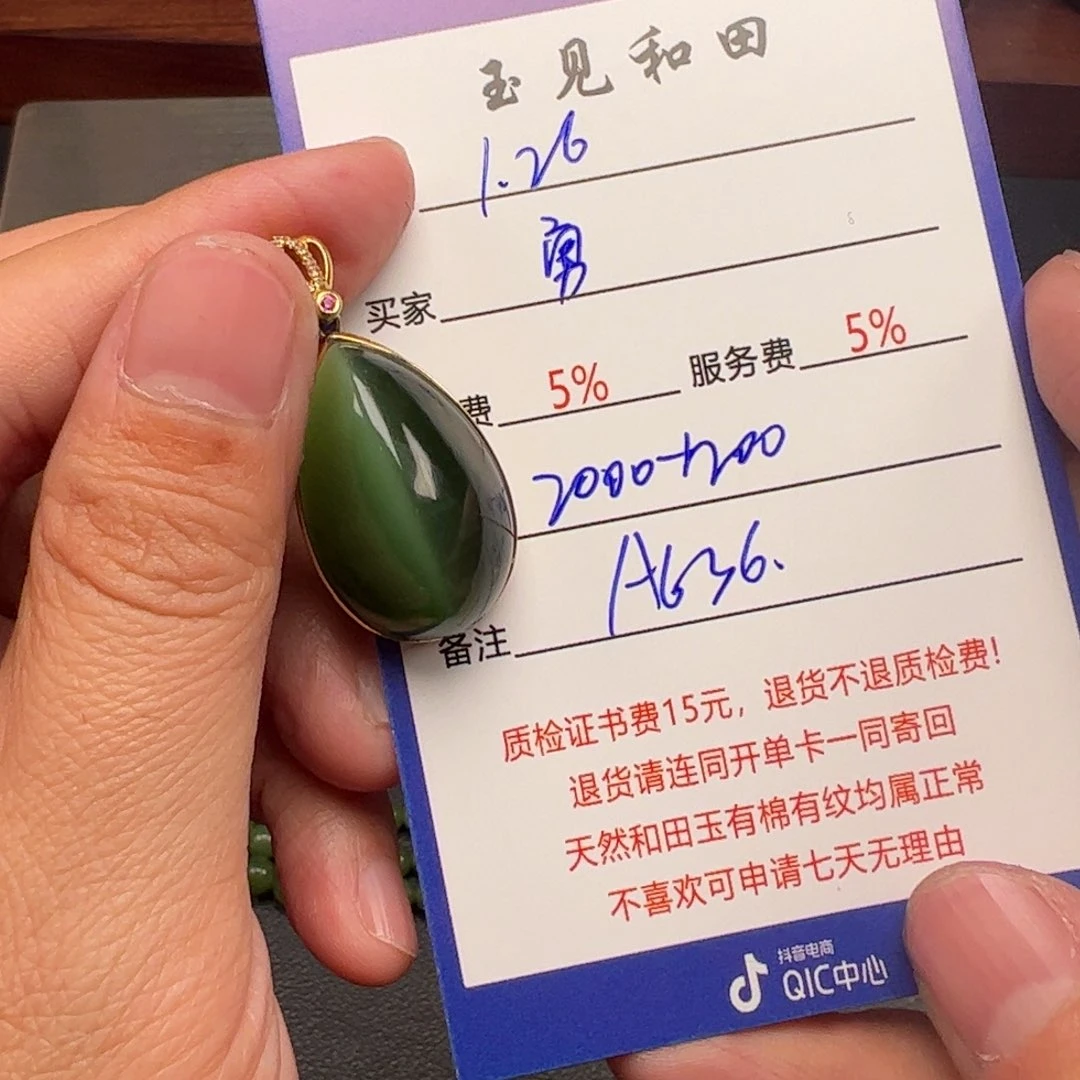 玉见和田
1.26
买家 勇
费 5% 服务费 5%
2000+200
备注 A636.
质检证书费15元，退货不退质检费!
退货请连同开单卡一同寄回
天然和田玉有棉有纹均属正常
不喜欢可申请七天无理由
抖音电商
QIC中心